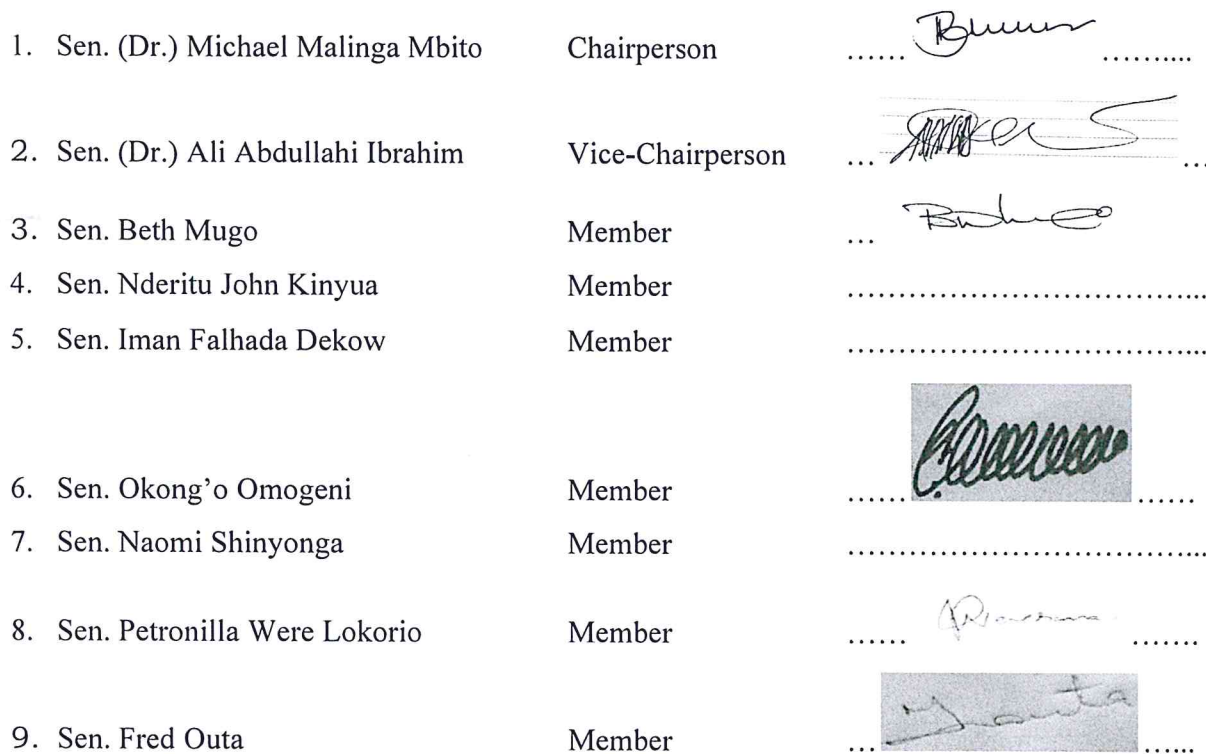 1. Sen. (Dr.) Michael Malinga Mbito Chairperson ...... .........
2. Sen. (Dr.) Ali Abdullahi Ibrahim Vice-Chairperson ... ...
3. Sen. Beth Mugo Member ...
4. Sen. Nderitu John Kinyua Member ..................................
5. Sen. Iman Falhada Dekow Member ..................................
6. Sen. Okong’o Omogeni Member ...... ......
7. Sen. Naomi Shinyonga Member ..................................
8. Sen. Petronilla Were Lokorio Member ...... .......
9. Sen. Fred Outa Member ... ......